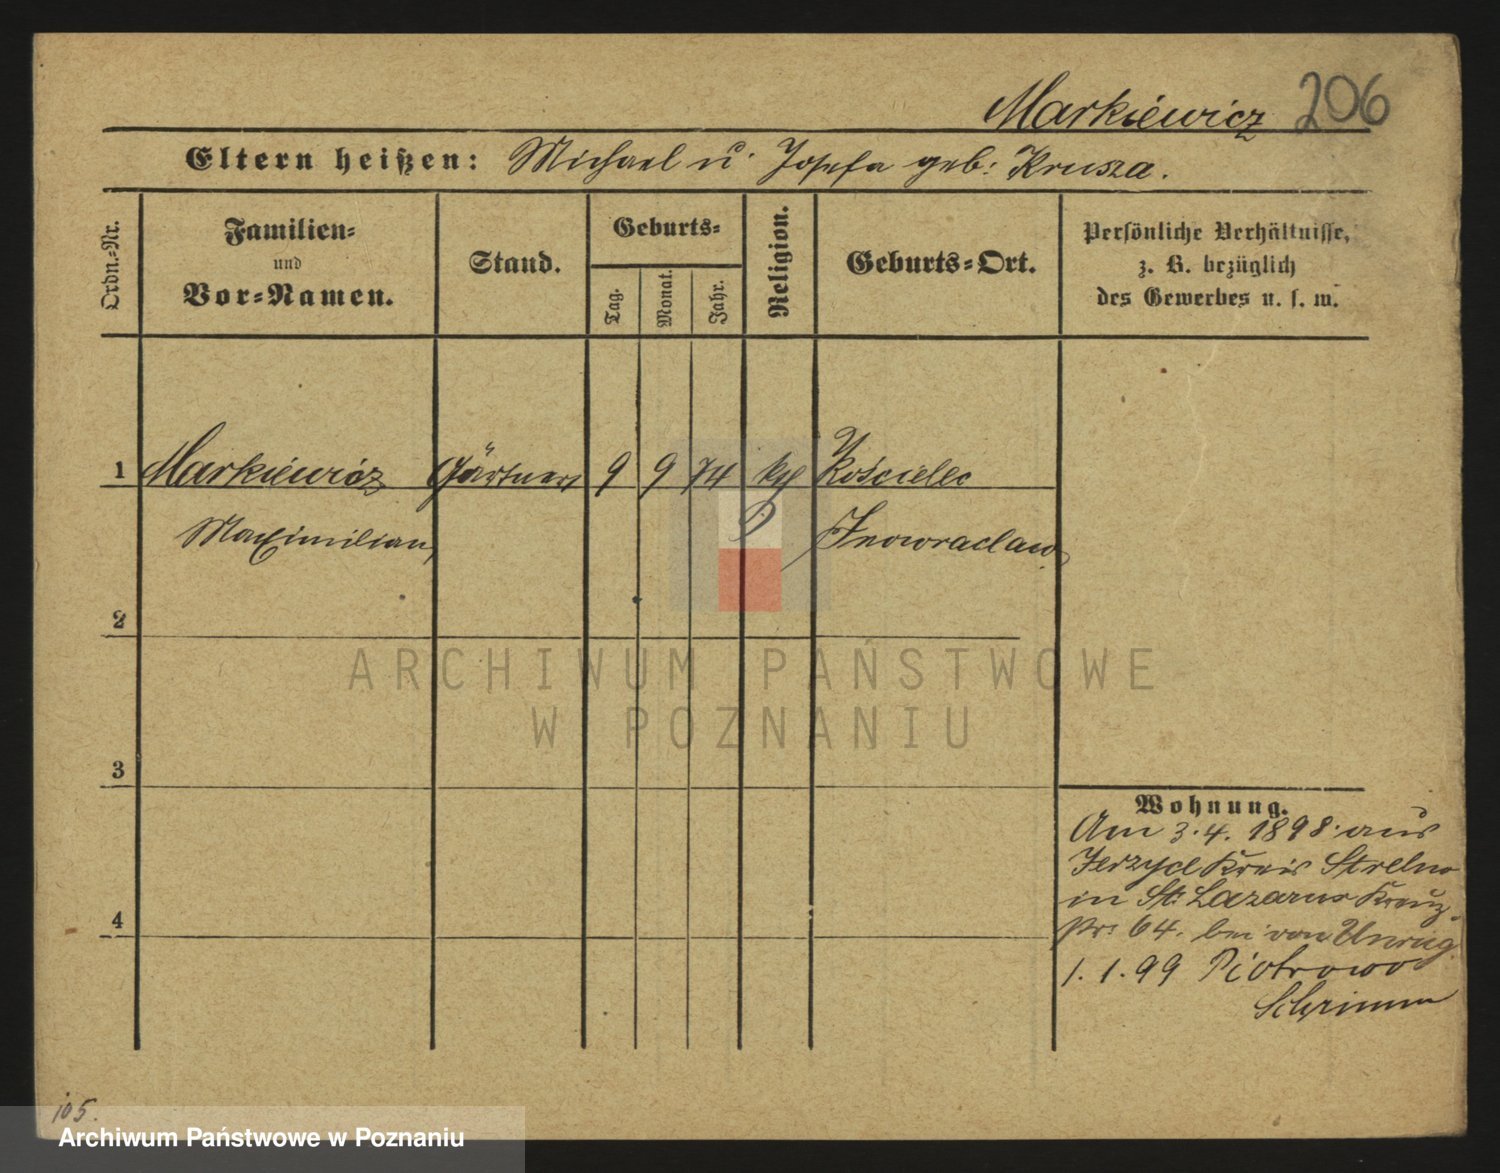 Markiewicz 206
Eltern heißen: Michael u. Josefa geb: Krusza.
Ordn.-Nr.
Familien-
und
Vor-Namen.
Stand.
Geburts-
Tag.
Monat.
Jahr.
Religion.
Geburts-Ort.
Persönliche Verhältnisse,
z. B. bezüglich
des Gewerbes u. s. w.
1 Markiewicz Gärtner 9 9 74 kth Kościelec
Maximilian Inowraclaw
2
ARCHIWUM PAŃSTWOWE
W POZNANIU
3
Wohnung.
Am 3.4.1898 aus
Jerzyce Kreis Strelno
in St. Lazarus Kreuz
Nr: 64. bei von Unrug
4
1.1.99 Piotrowo
Schrimm
105.
Archiwum Państwowe w Poznaniu